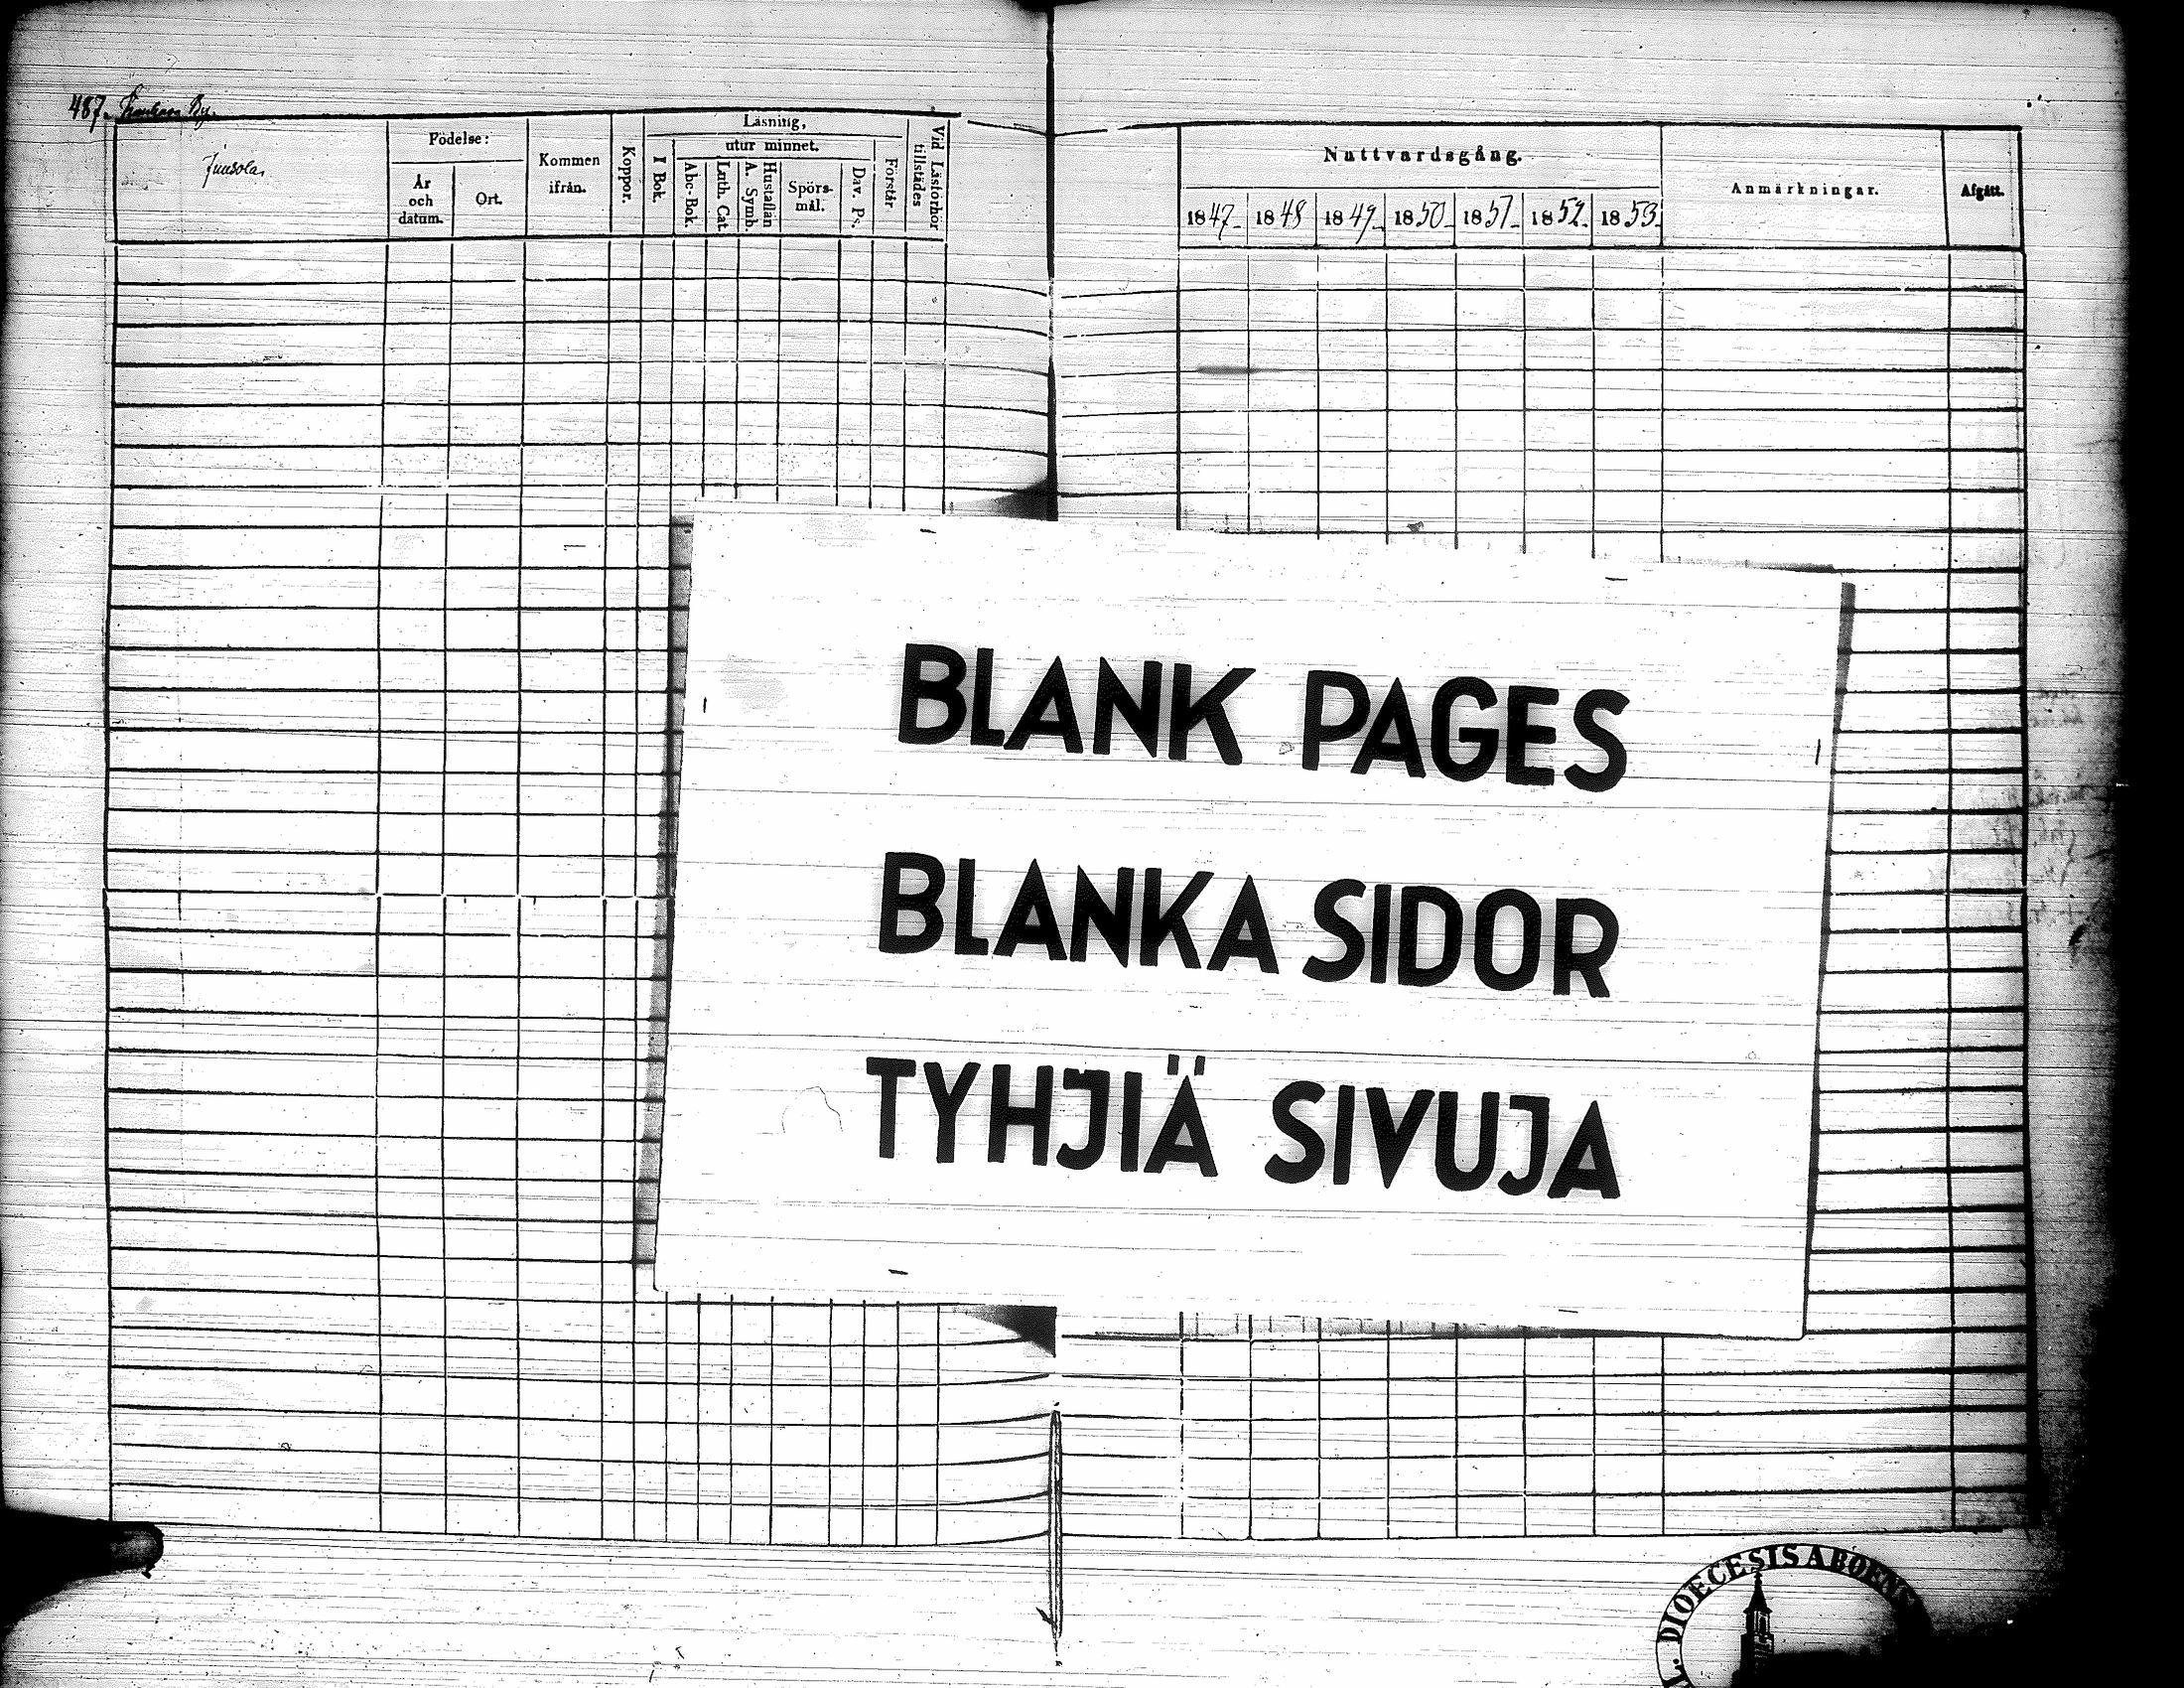 487.
By.
Juusola,
Födelse:
År
och
datum.
Ort.
Kommen
ifrån.
Koppor.
Läsning,
utur minnet.
I Bok.
Abc-Bok.
Luth. Cat.
A. Symb.
Hustaflan
Spörs-
mål.
Dav. Ps.
Förstår
Vid Läsförhör
tillstädes
Nattvardsgång.
1847.
1848
1849.
1850.
1851.
1852.
1853.
Anmärkningar.
Afgått.
BLANK PAGES
BLANKA SIDOR
TYHJIÄ SIVUJA
DIOECESIS ABOENS